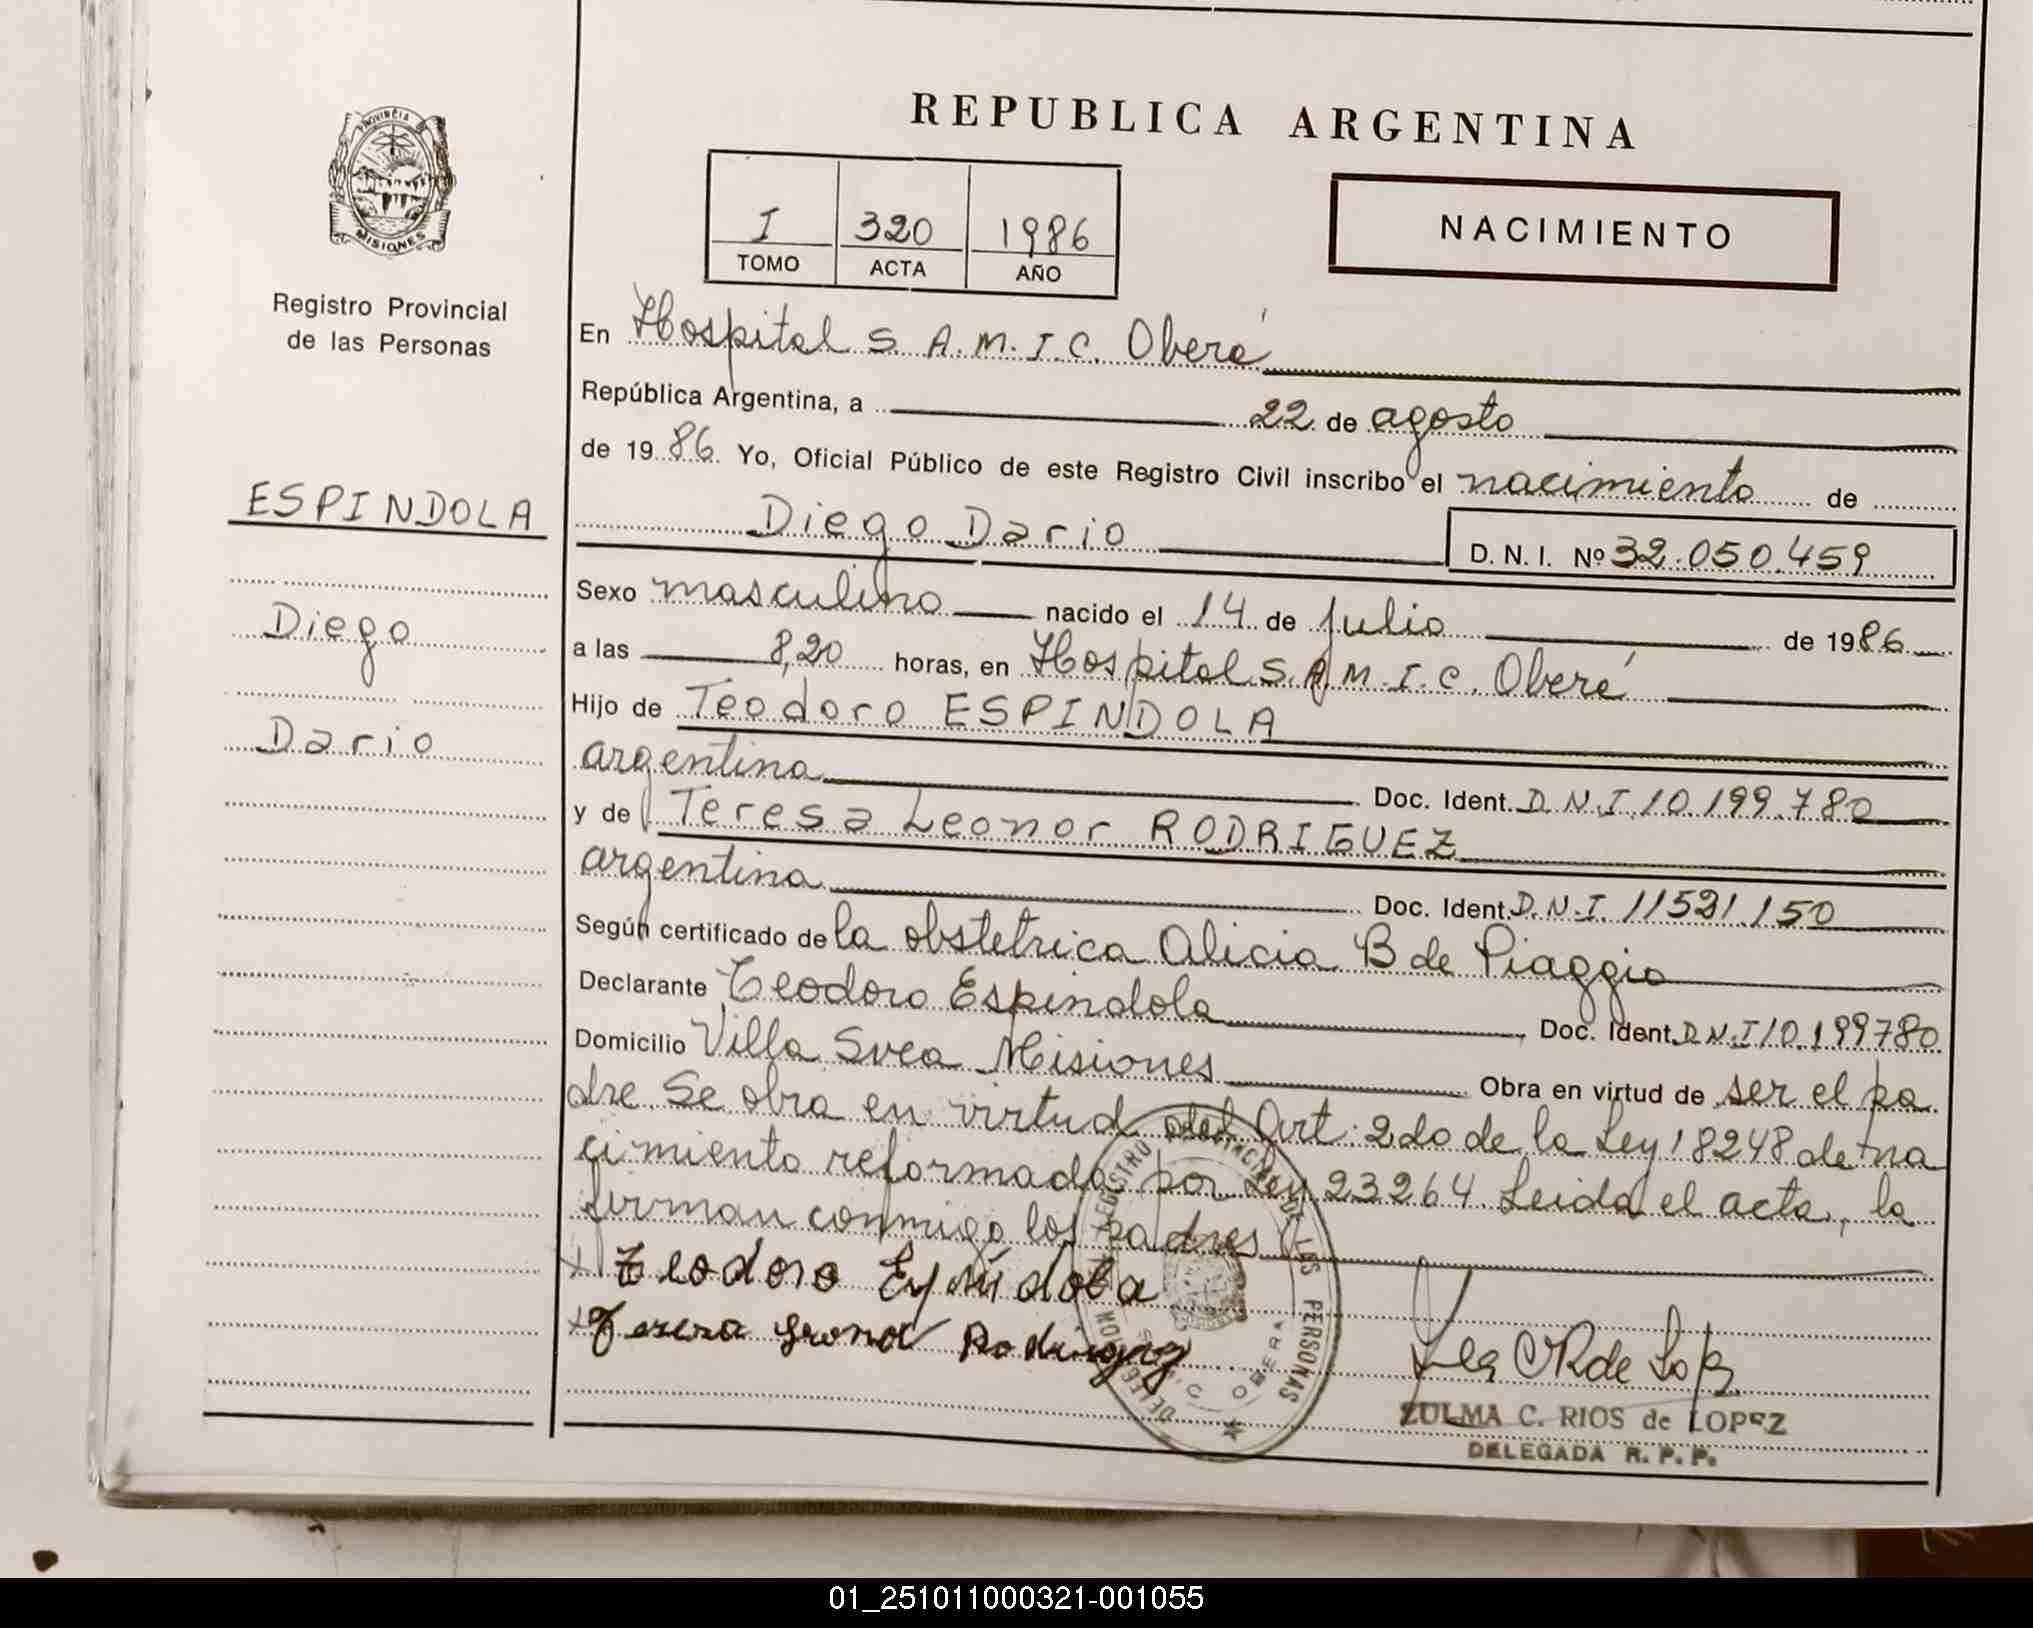 REPUBLICA ARGENTINA
PROVINCIA DE MISIONES
Registro Provincial
de las Personas
I 320 1986
TOMO ACTA AÑO
NACIMIENTO
En Hospital S.A.M.I.C. Oberá
República Argentina, a 22 de agosto
de 1986 Yo, Oficial Público de este Registro Civil inscribo el nacimiento de
ESPINDOLA
Diego Dario
D. N. I. Nº 32.050.459
Sexo masculino nacido el 14 de julio de 1986
Diego
a las 8,20 horas, en Hospital S.A.M.I.C. Oberá
Hijo de Teodoro ESPINDOLA
Dario
argentina Doc. Ident. D.N.I. 10.199.780
y de Teresa Leonor RODRIGUEZ
argentina Doc. Ident. D.N.I. 11531.150
Según certificado de la obstetrica Alicia B de Piaggio
Declarante Teodoro Espindola Doc. Ident. D.N.I 10.199780
Domicilio Villa Svea Misiones Obra en virtud de ser el pa
dre. Se obra en virtud del Art. 2do de la Ley 18248 de na
cimiento reformada por Ley 23264. Leida el acta, la
firman conmigo los padres
x Teodoro Espindola
x Teresa Leonor Rodriguez
DELEGACION REGISTRO PROVINCIAL DE LAS PERSONAS
OBERA
ZULMA C. RIOS de LOPEZ
DELEGADA R. P. P.
01_251011000321-001055